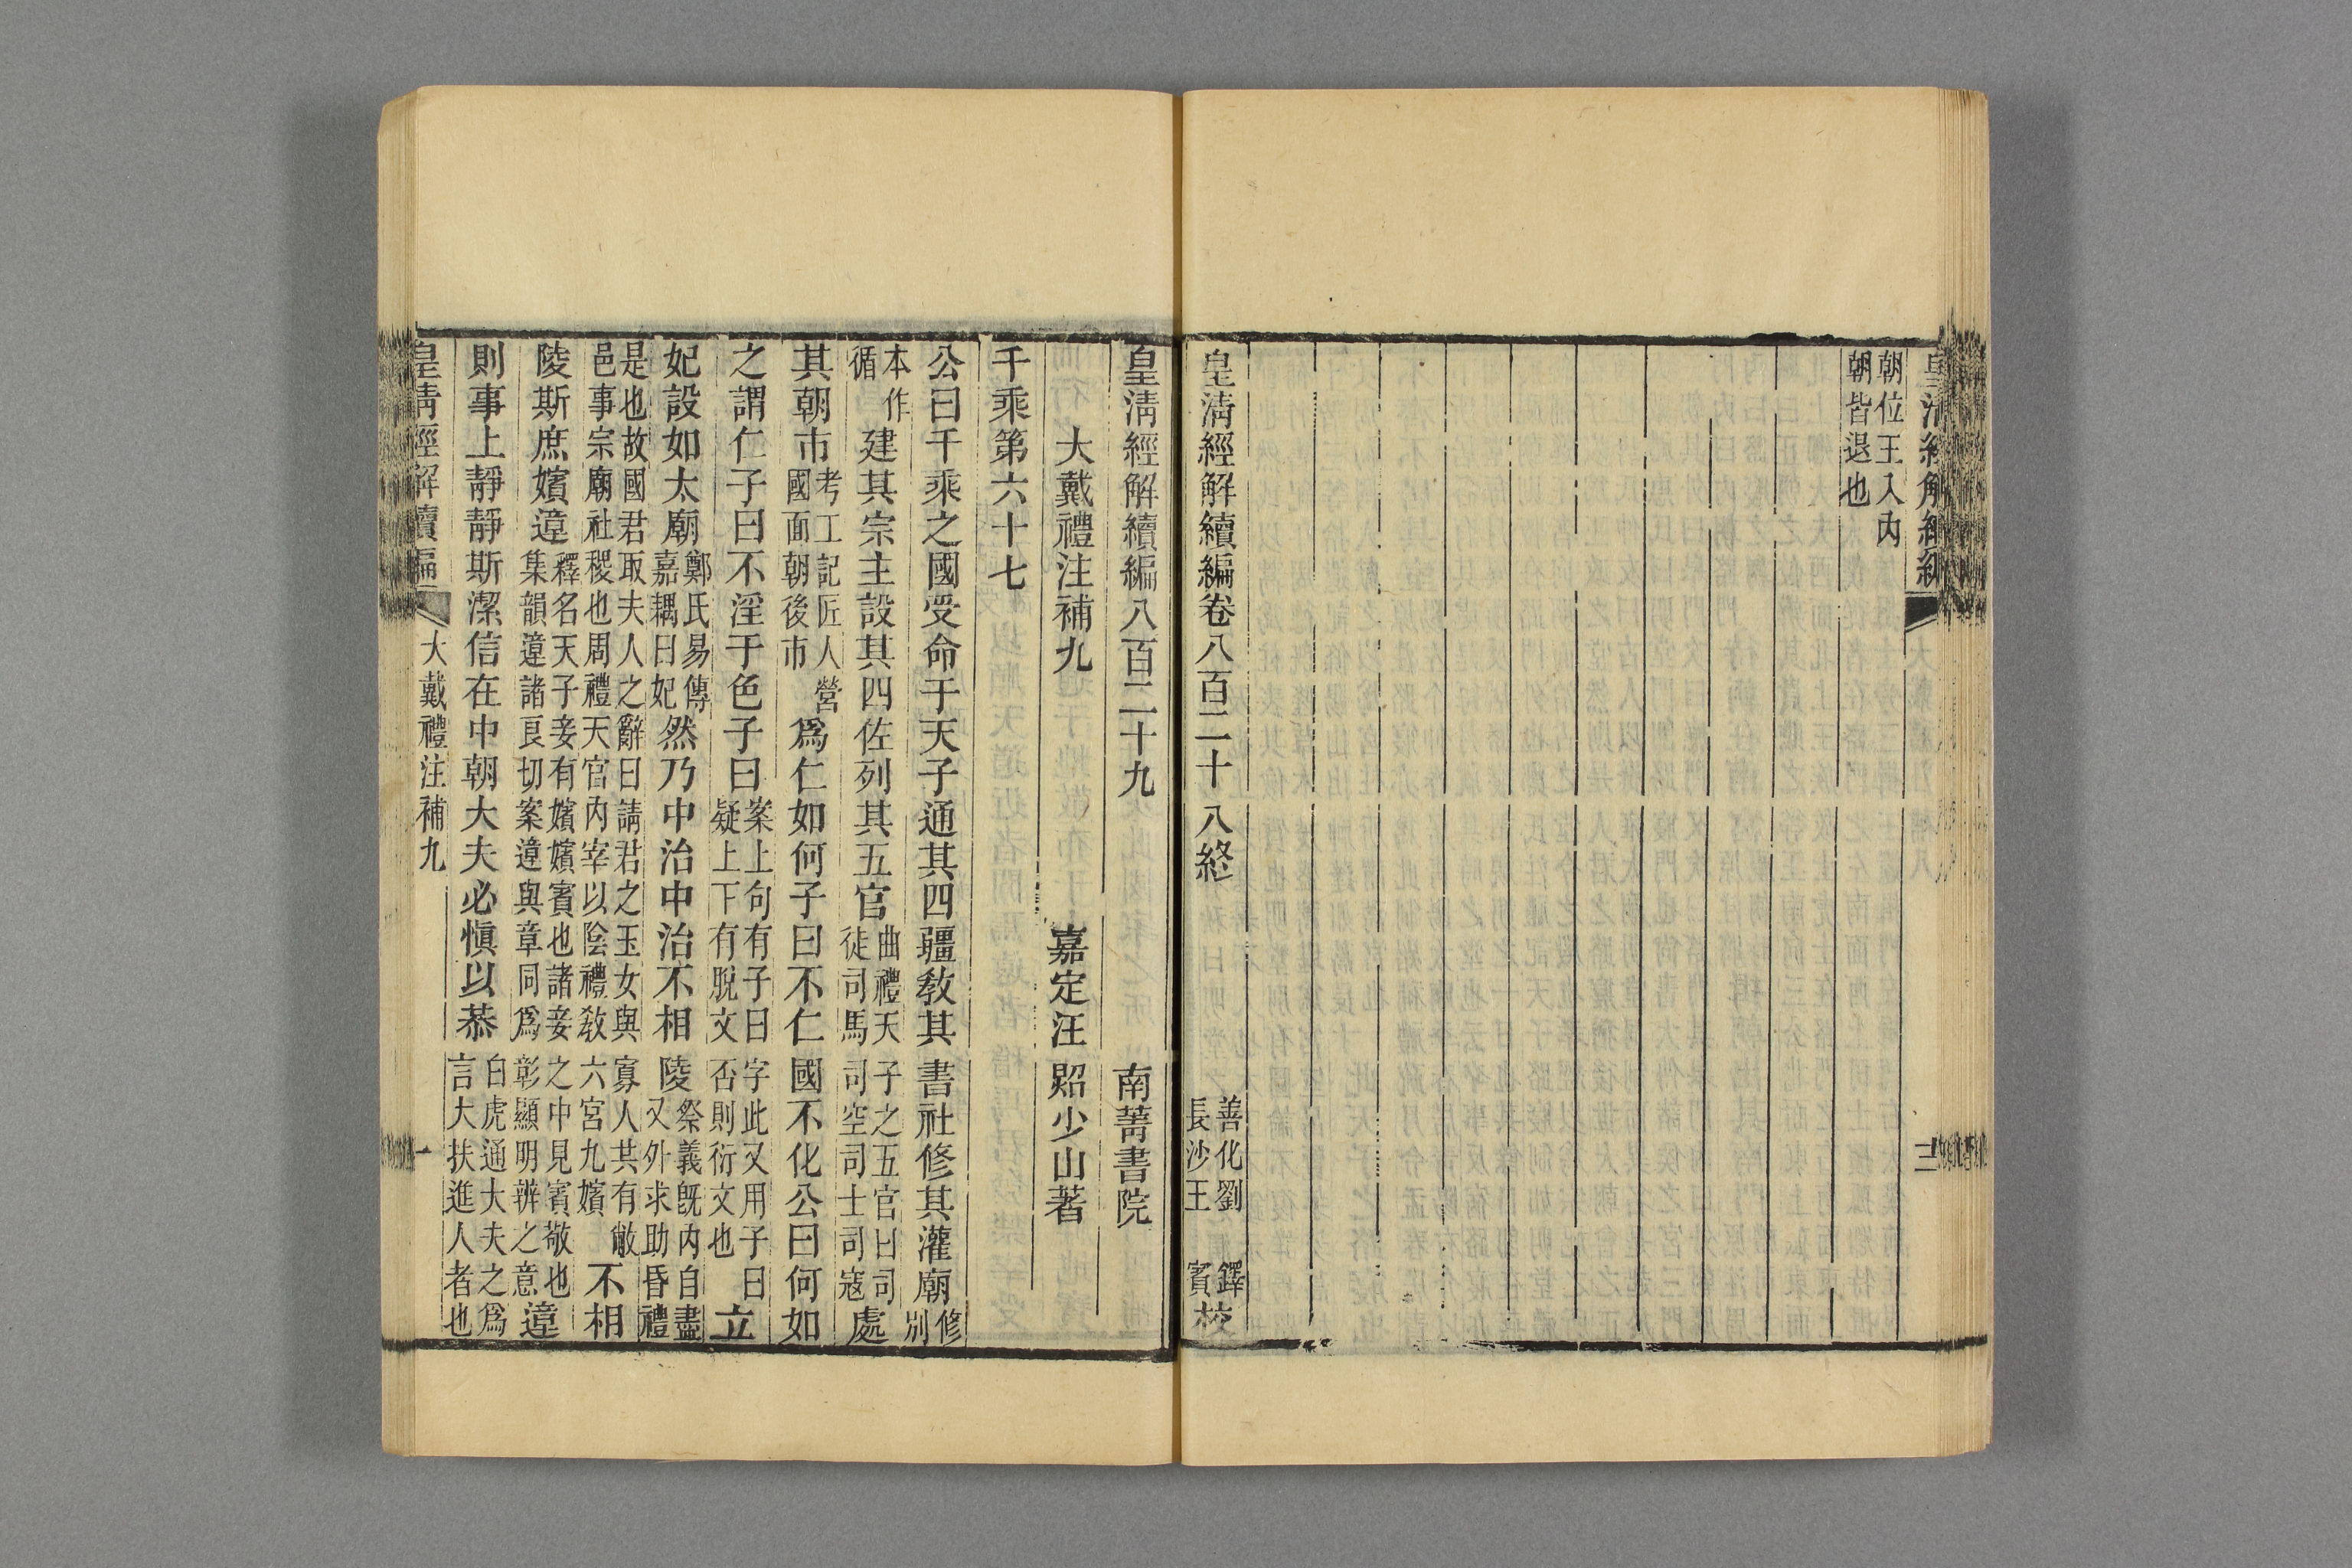 朝位王入内
朝皆退也
皇清經解續編卷八百二十八終
善化劉鐸
長沙王賓校
皇清經解續編八百二十九
南菁書院
大戴禮注補九
嘉定汪照少山著
千乘第六十七
公曰千乘之國受命于天子通其四疆敎其書社修其灌廟修别
本作循建其宗主設其四佐列其五官曲禮天子之五官曰司徒司馬司空司士司寇處
其朝市考工記匠人營國面朝後市爲仁如何子曰不仁國不化公曰何如
之謂仁子曰不淫于色子曰案上句有子曰字此又用子曰疑上下有脫文否則衍文也立
妃設如太廟鄭氏易傳嘉耦曰妃然乃中治中治不相陵祭義旣内自盡又外求助昏禮
是也故國君取夫人之辭曰請君之玉女與寡人共有敝邑事宗廟社稷也周禮天官内宰以陰禮敎六宮九嬪不相
陵斯庶嬪違釋名天子妾有嬪嬪賓也諸妾之中見賓敬也集韻違諸良切案違與章同爲彰顯明辨之意違
則事上靜靜斯潔信在中朝大夫必愼以恭白虎通大夫之爲言大扶進人者也
皇清經解續編 大戴禮注補九 一